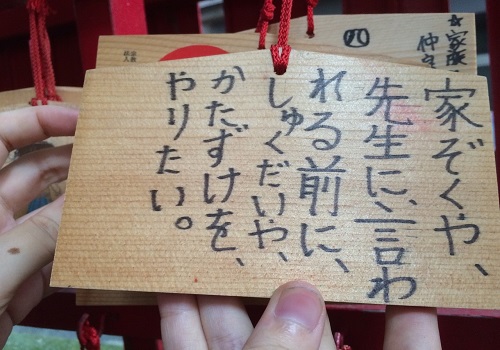 家ぞくや、
先生に、言わ
れる前に、
しゅくだいや、
かたずけを、
やりたい。
★家族
仲良
四